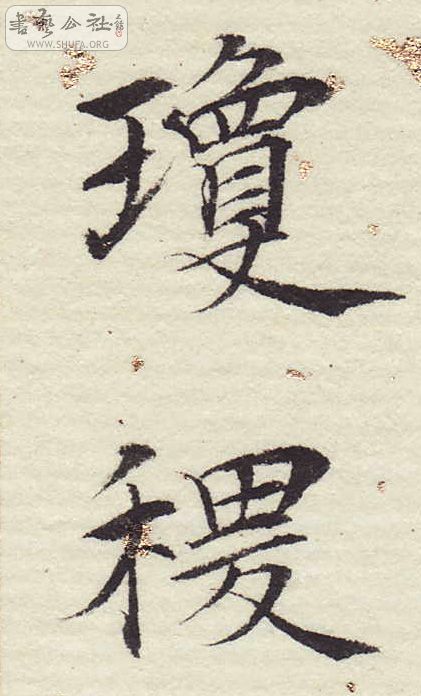 書藝公社
WWW.SHUFA.ORG
瓊
稷